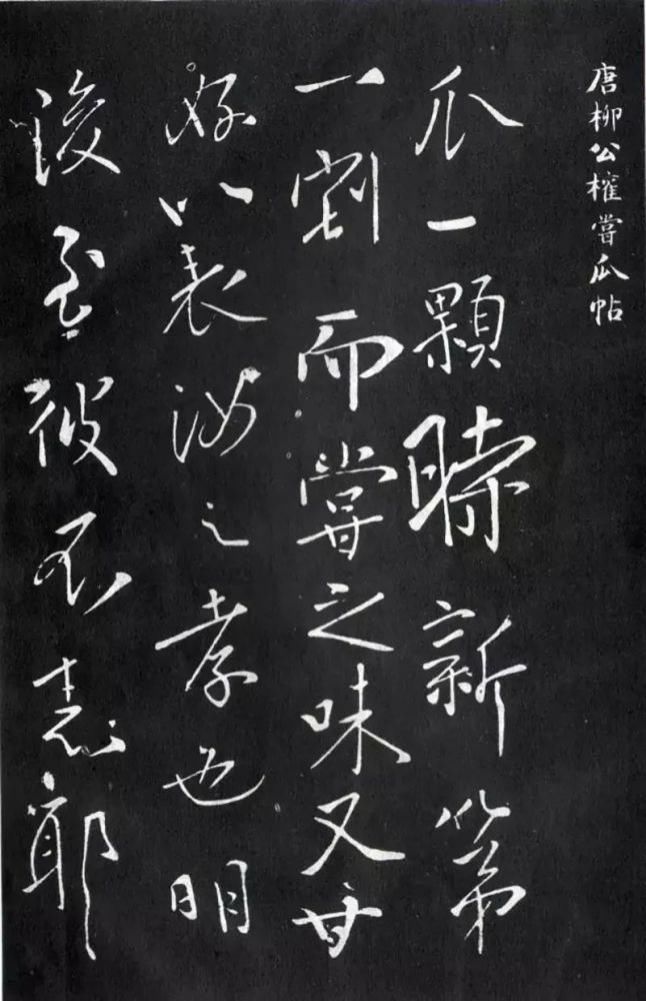 唐柳公權嘗瓜帖
瓜一顆時新第
一割而嘗之味又甘
好以表汝之孝也明
浚至彼不